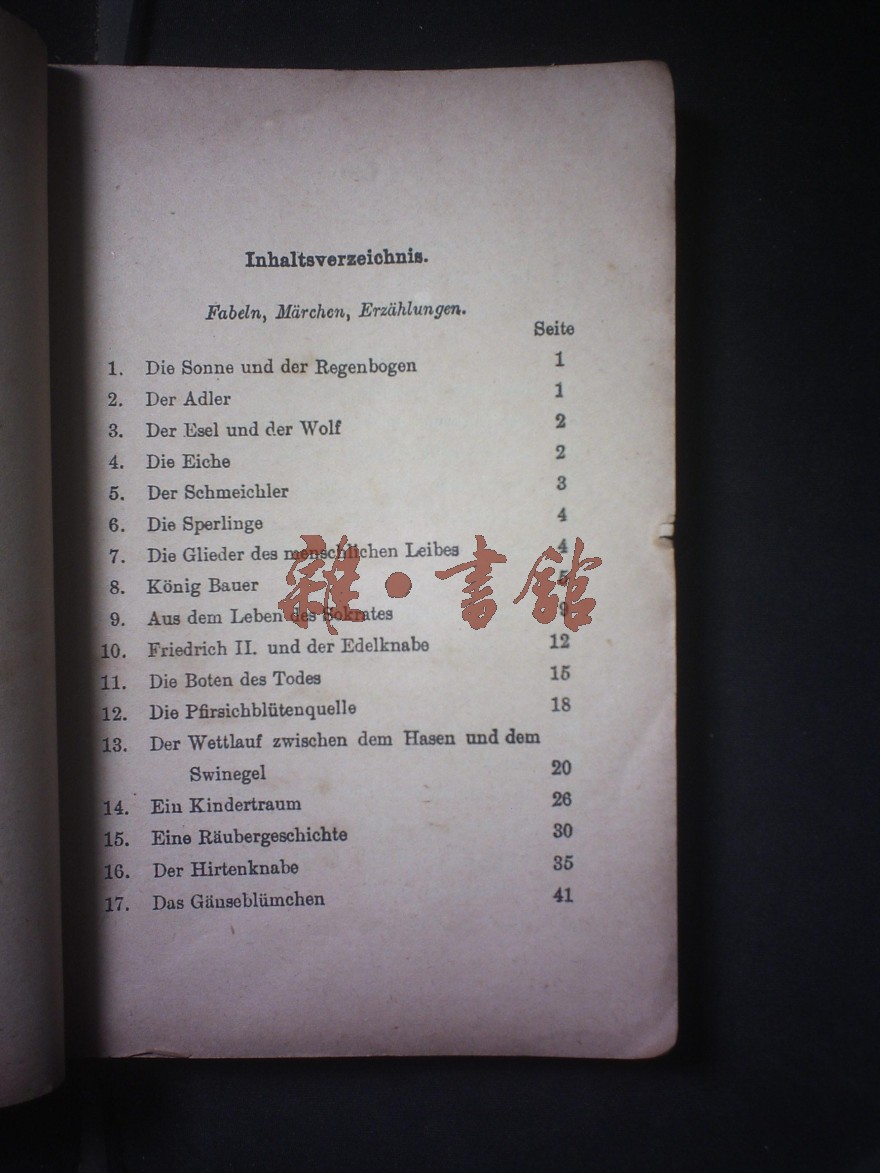 Inhaltsverzeichnis.
Fabeln, Märchen, Erzählungen.
Seite
1. Die Sonne und der Regenbogen 1
2. Der Adler 1
3. Der Esel und der Wolf 2
4. Die Eiche 2
5. Der Schmeichler 3
6. Die Sperlinge 4
7. Die Glieder des menschlichen Leibes 4
8. König Bauer 5
9. Aus dem Leben des Sokrates 9
10. Friedrich II. und der Edelknabe 12
11. Die Boten des Todes 15
12. Die Pfirsichblütenquelle 18
13. Der Wettlauf zwischen dem Hasen und dem
Swinegel 20
14. Ein Kindertraum 26
15. Eine Räubergeschichte 30
16. Der Hirtenknabe 35
17. Das Gänseblümchen 41
雜·書館